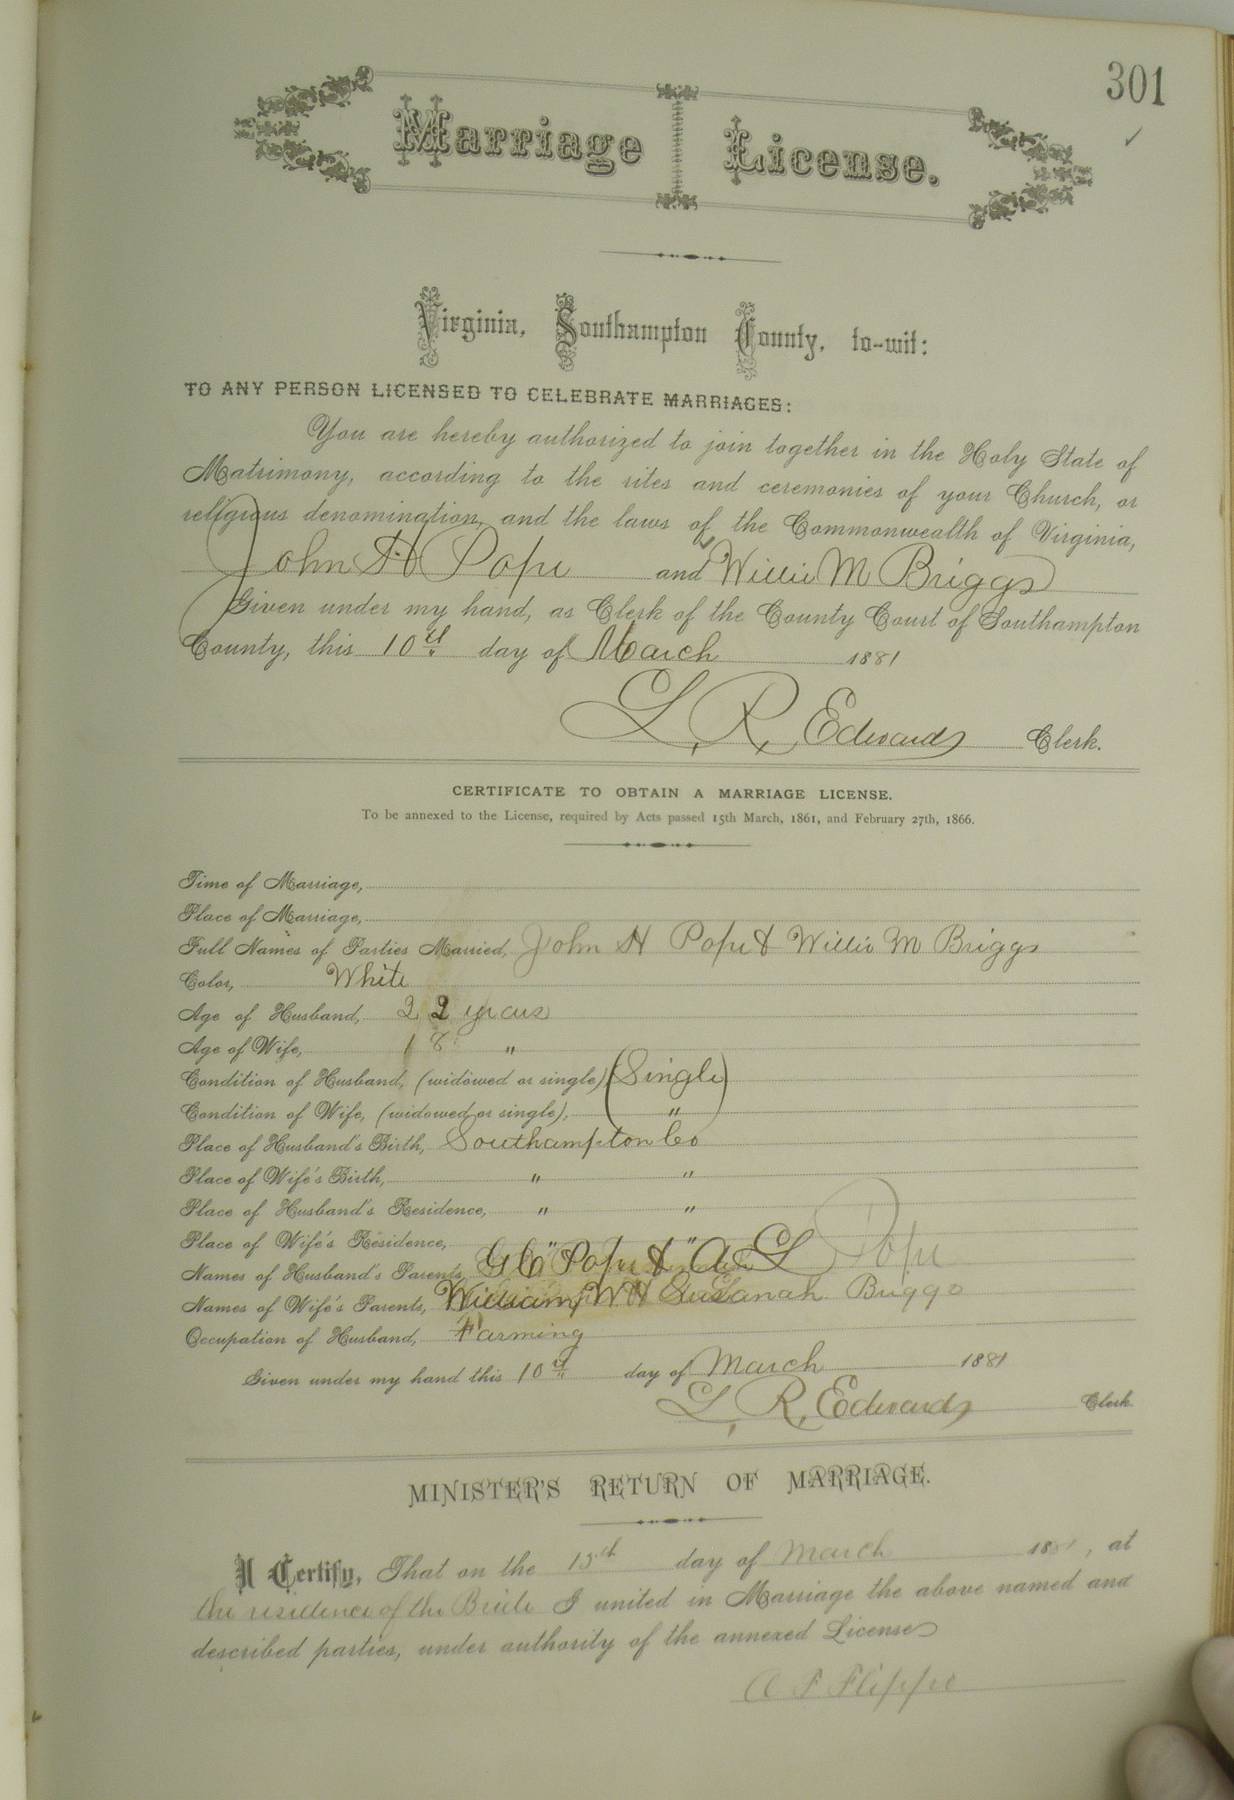 301
Marriage License.
Virginia, Southampton County, to-wit:
TO ANY PERSON LICENSED TO CELEBRATE MARRIAGES:
You are hereby authorized to join together in the Holy State of
Matrimony, according to the rites and ceremonies of your Church, or
religious denomination, and the laws of the Commonwealth of Virginia,
John H Pope and Willie M Briggs
Given under my hand, as Clerk of the County Court of Southampton
County, this 10th day of March 1881
L. R. Edwards Clerk.
CERTIFICATE TO OBTAIN A MARRIAGE LICENSE.
To be annexed to the License, required by Acts passed 15th March, 1861, and February 27th, 1866.
Time of Marriage,
Place of Marriage,
Full Names of Parties Married, John H Pope & Willie M Briggs
Color, White
Age of Husband, 22 years
Age of Wife, 18 "
Condition of Husband, (widowed or single), Single
Condition of Wife, (widowed or single), "
Place of Husband's Birth, Southampton Co
Place of Wife's Birth, " "
Place of Husband's Residence, " "
Place of Wife's Residence, " "
Names of Husband's Parents, Pope & Pope
Names of Wife's Parents, William W H Susanah Briggs
Occupation of Husband, Farming
Given under my hand this 10th day of March 1881
L. R. Edwards Clerk.
MINISTER'S RETURN OF MARRIAGE.
I Certify, That on the 15th day of March 1881, at
the residence of the Bride I united in Marriage the above named and
described parties, under authority of the annexed License
A F Flippo